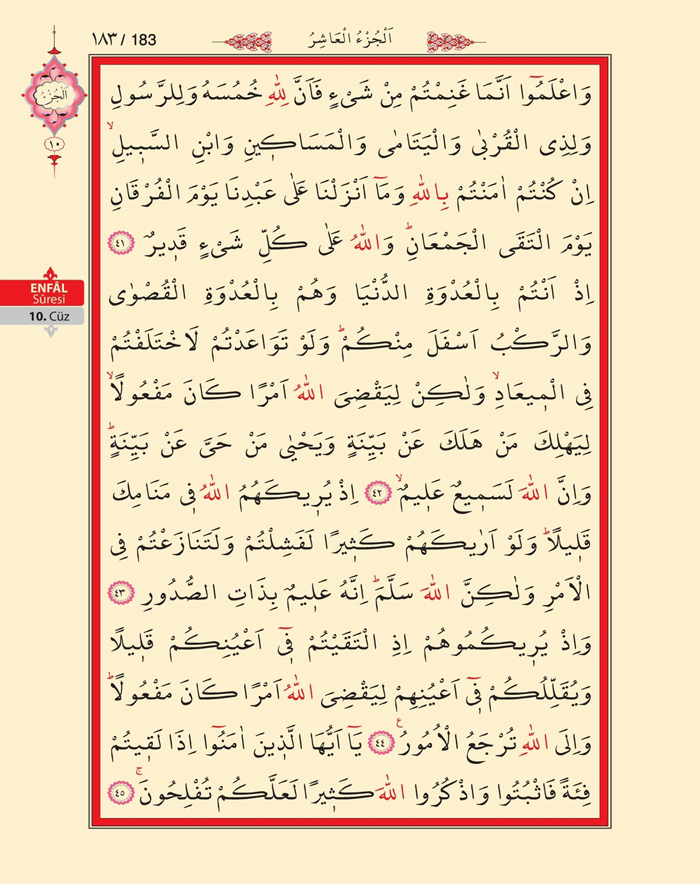 ١٨٣ / 183
اَلْجُزْءُ الْعَاشِرُ
اَلْجُزْءُ
١٠
وَاعْلَمُٓوا اَنَّمَا غَنِمْتُمْ مِنْ شَيْءٍ فَاَنَّ لِلّٰهِ خُمُسَهُ وَلِلرَّسُولِ
وَلِذِي الْقُرْبٰى وَالْيَتَامٰى وَالْمَسَاك۪ينِ وَابْنِ السَّب۪يلِۙ
اِنْ كُنْتُمْ اٰمَنْتُمْ بِاللّٰهِ وَمَٓا اَنْزَلْنَا عَلٰى عَبْدِنَا يَوْمَ الْفُرْقَانِ
يَوْمَ الْتَقَى الْجَمْعَانِۜ وَاللّٰهُ عَلٰى كُلِّ شَيْءٍ قَد۪يرٌ ﴿٤١﴾
اِذْ اَنْتُمْ بِالْعُدْوَةِ الدُّنْيَا وَهُمْ بِالْعُدْوَةِ الْقُصْوٰى
وَالرَّكْبُ اَسْفَلَ مِنْكُمْۜ وَلَوْ تَوَاعَدْتُمْ لَاخْتَلَفْتُمْ
فِي الْم۪يعَادِۙ وَلٰكِنْ لِيَقْضِيَ اللّٰهُ اَمْرًا كَانَ مَفْعُولًاۙ
لِيَهْلِكَ مَنْ هَلَكَ عَنْ بَيِّنَةٍ وَيَحْيٰى مَنْ حَيَّ عَنْ بَيِّنَةٍۜ
وَاِنَّ اللّٰهَ لَسَم۪يعٌ عَل۪يمٌۙ ﴿٤٢﴾ اِذْ يُر۪يكَهُمُ اللّٰهُ ف۪ي مَنَامِكَ
قَل۪يلًاۜ وَلَوْ اَرٰيكَهُمْ كَث۪يرًا لَفَشِلْتُمْ وَلَتَنَازَعْتُمْ فِي
الْاَمْرِ وَلٰكِنَّ اللّٰهَ سَلَّمَۜ اِنَّهُ عَل۪يمٌ بِذَاتِ الصُّدُورِ ﴿٤٣﴾
وَاِذْ يُر۪يكُمُوهُمْ اِذِ الْتَقَيْتُمْ ف۪ٓي اَعْيُنِكُمْ قَل۪يلًا
وَيُقَلِّلُكُمْ ف۪ٓي اَعْيُنِهِمْ لِيَقْضِيَ اللّٰهُ اَمْرًا كَانَ مَفْعُولًاۜ
وَاِلَى اللّٰهِ تُرْجَعُ الْاُمُورُ۟ ﴿٤٤﴾ يَٓا اَيُّهَا الَّذ۪ينَ اٰمَنُٓوا اِذَا لَق۪يتُمْ
فِئَةً فَاثْبُتُوا وَاذْكُرُوا اللّٰهَ كَث۪يرًا لَعَلَّكُمْ تُفْلِحُونَۚ ﴿٤٥﴾
ENFÂL
Sûresi
10. Cüz